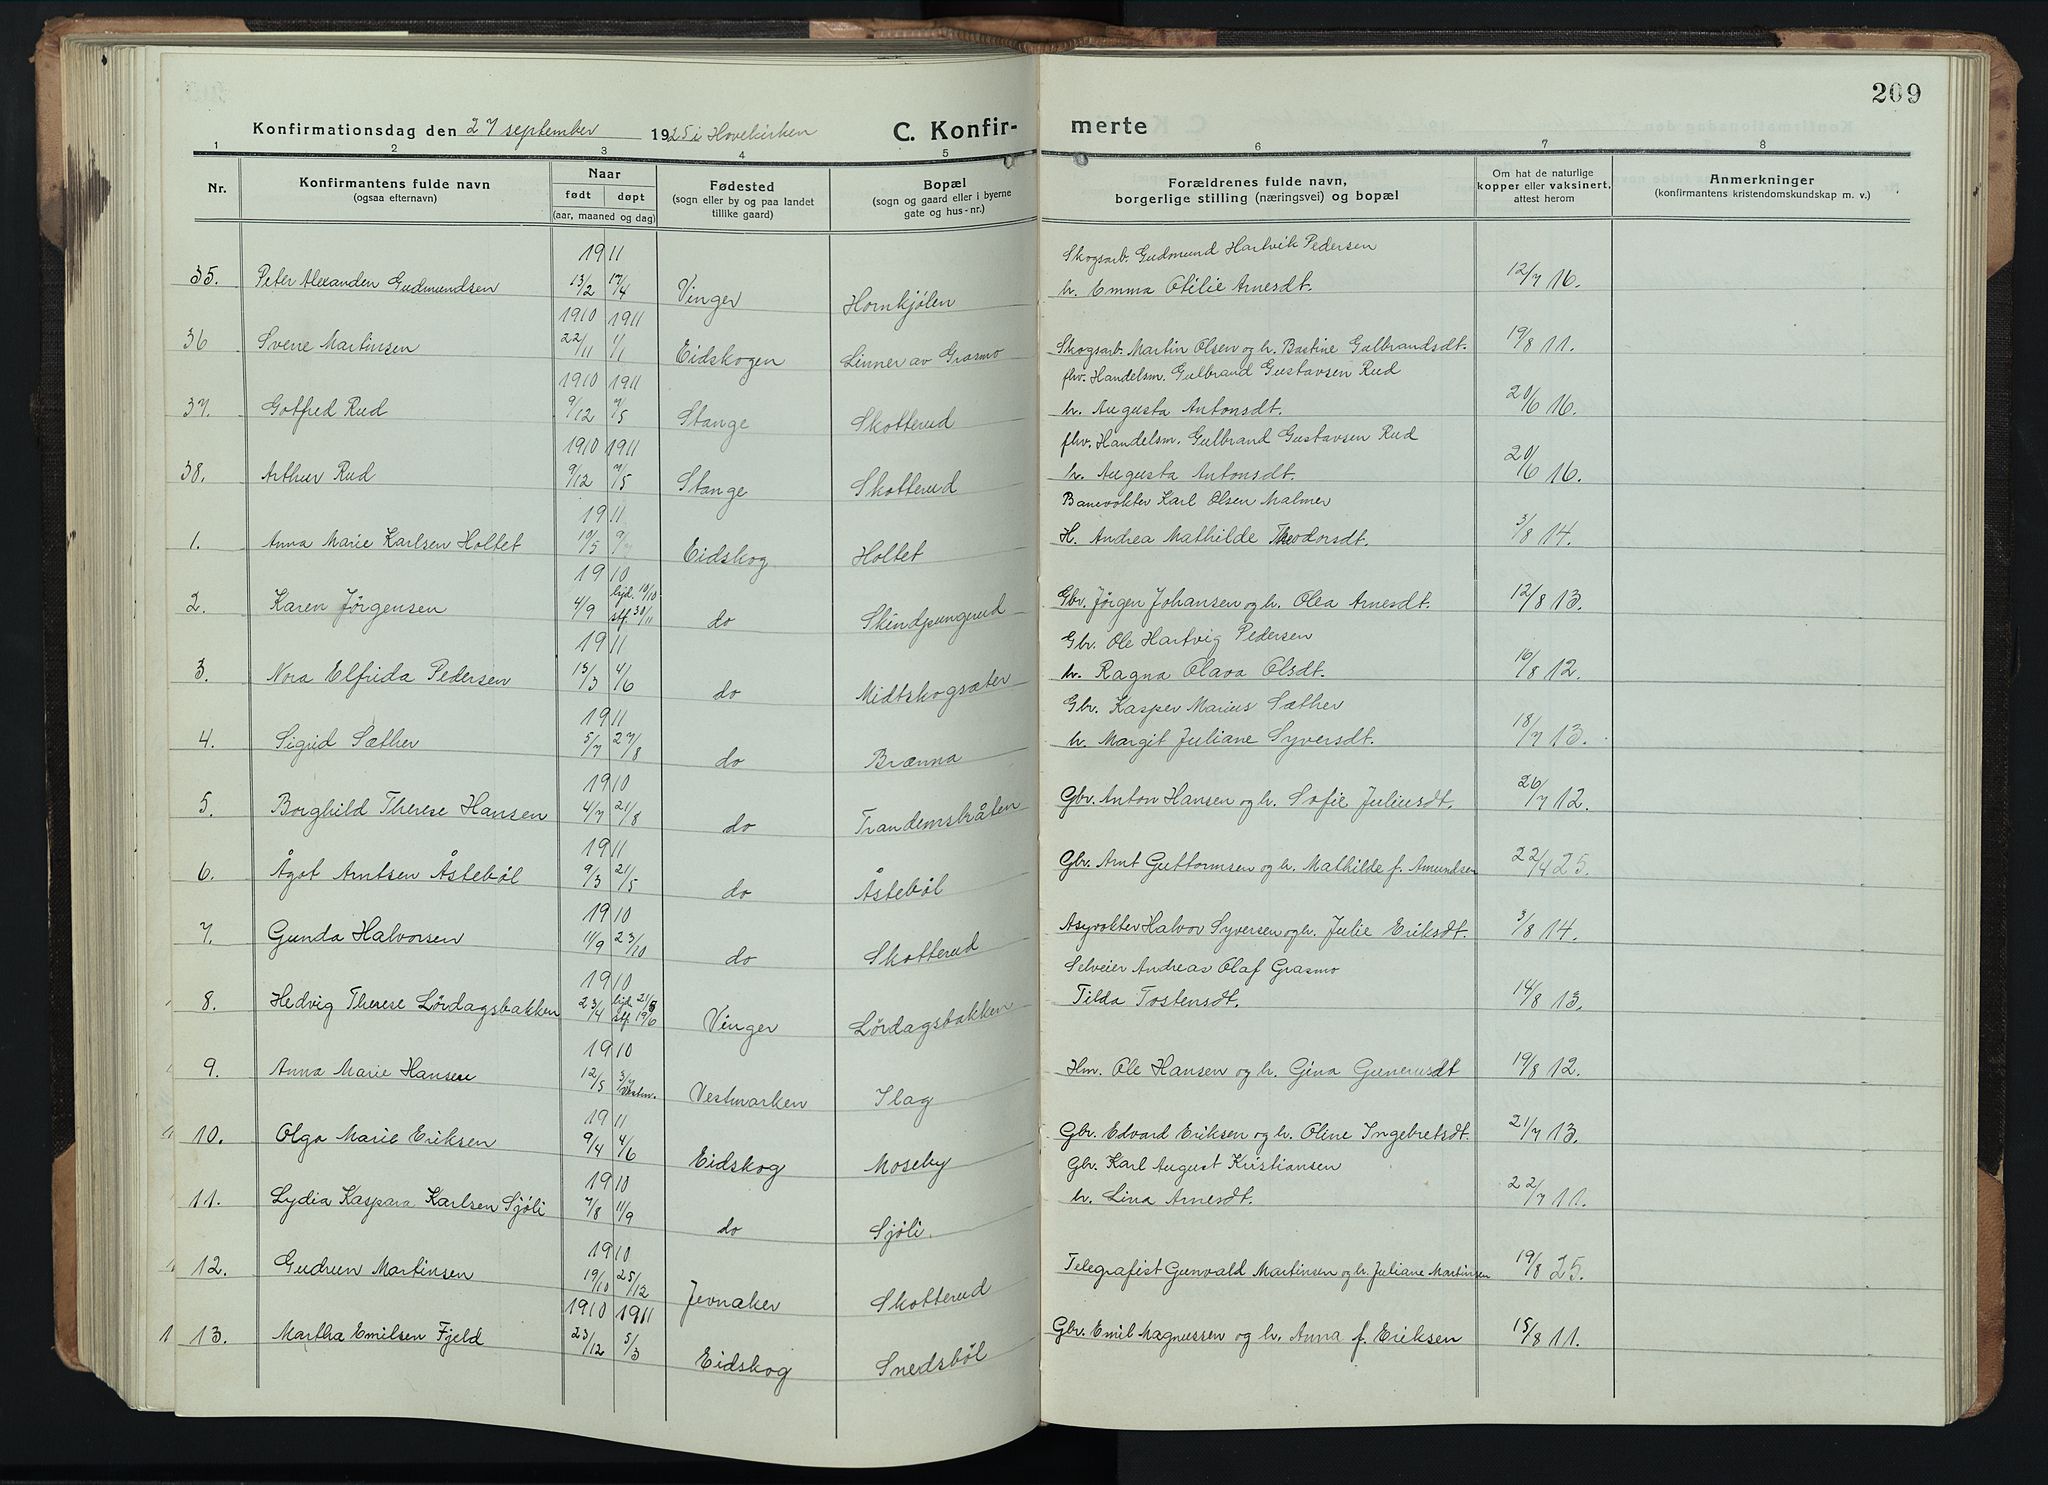 209
Konfirmationsdag den 27 september 1925 i Hovekirken C. Konfirmerte
1 2 3 4 5 6 7 8
Nr. Konfirmantens fulde navn (ogsaa efternavn) Naar født døpt (aar, maaned og dag) Fødested (sogn eller by og paa landet tillike gaard) Bopæl (sogn og gaard eller i byerne gate og hus-nr.) Forældrenes fulde navn, borgerlige stilling (næringsvei) og bopæl Om hat de naturlige kopper eller vaksinert, attest herom Anmerkninger (konfirmantens kristendomskundskap m. v.)
1911 Skogsarb. Gudmund Hartvik Pedersen
35. Peter Alexander Gudmundsen 13/2 17/4 Vinger Hornkjølen h. Emma Otilie Arnesdt. 12/7 16.
1910 1911
36 Svene Martinsen 22/11 1/1 Eidskogen Linner av Grasmo Skogsarb. Martin Olsen og h. Bastine Gulbrandsdt. 19/8 11.
1910 1911 fhv. Handelsm. Gulbrand Gustavsen Rud
37. Gotfred Rud 9/12 7/5 Stange Skotterud h. Augusta Antonsdt. 20/6 16.
1910 1911 fhv. Handelsm. Gulbrand Gustavsen Rud
38. Arthur Rud 9/12 7/5 Stange Skotterud h. Augusta Antonsdt. 20/6 16.
1911 Banevokter Karl Olsen Malmer
1. Anna Marie Karlsen Holtet 19/5 9/7 Eidskog Holtet H. Andrea Mathilde Theodorsdt. 3/8 14.
1910
2. Karen Jørgensen 4/9 hjd. 10/10 stf. 30/11 do Skindpungrud Gbr. Jørgen Johansen og h. Olea Arnesdt. 12/8 13.
1911 Gbr. Ole Hartvig Pedersen
3. Nora Elfrida Pedersen 15/3 4/6 do Midtskogsæter h. Ragna Olava Olsdt. 16/8 12.
1911 Gbr. Kasper Marius Sæther
4. Sigrid Sæther 5/7 27/8 do Brænna h. Margit Juliane Syversdt. 18/7 13.
1910
5. Borghild Therese Hansen 4/7 21/8 do Trandemsbråten Gbr. Anton Hansen og h. Sofie Juliusdt. 26/7 12.
1911
6. Ågot Arntsen Åstebøl 9/3 21/5 do Åstebøl Gbr. Arnt Guttormsen og h. Mathilde f. Amundsen 22/4 25.
1910
7. Gunda Halvorsen 11/9 23/10 do Skotterud Asylvokter Halvor Syversen og h. Julie Eriksdt. 3/8 14.
1910 Selveier Andreas Olaf Grasmo
8. Hedvig Therese Lørdagsbakken 23/4 hjd. 21/5 stf. 19/6 Vinger Lørdagsbakken Tilda Tostensdt. 14/8 13.
1910
9. Anna Marie Hansen 12/5 3/7 Vestm. Vestmarken Ilag Hm. Ole Hansen og h. Gina Gunerusdt 19/8 12.
1911
10. Olga Marie Eriksen 9/4 4/6 Eidskog Moseby Gbr. Edvard Eriksen og h. Oline Ingebretsdt. 21/7 13.
1910 Gbr. Karl August Kristiansen
11. Lydia Kaspara Karlsen Sjøli 7/8 11/9 do Sjøli. h. Lina Arnesdt. 22/7 11.
1910
12. Gudrun Martinsen 19/10 25/12 Jevnaker Skotterud Telegrafist Gunvald Martinsen og h. Juliane Martinsen 19/8 25.
1910 1911
1 13. Martha Emilsen Fjeld 23/12 5/3 Eidskog Snedsbøl Gbr. Emil Magnussen og h. Anna f. Eriksen 15/8 11.